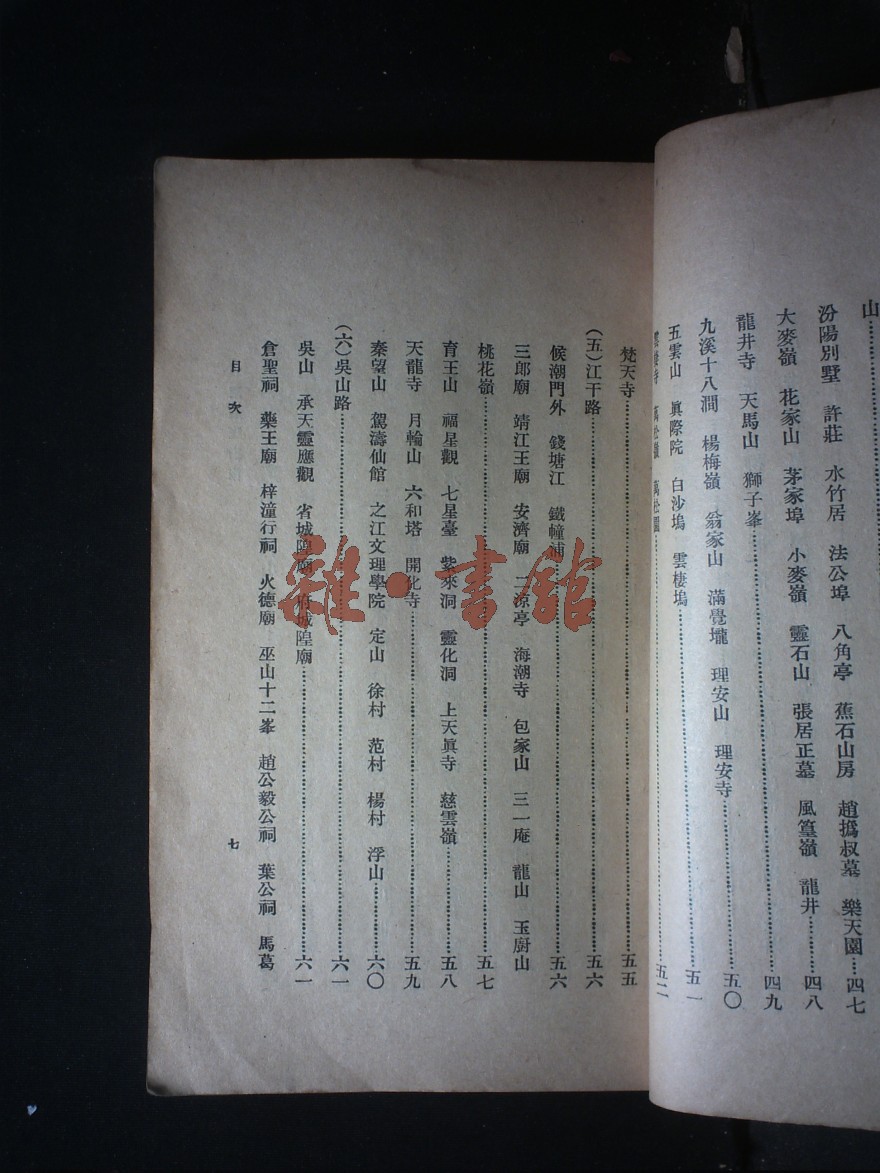 山
汾陽別墅 許莊 水竹居 法公埠 八角亭 蕉石山房 趙撝叔墓 樂天園……四七
大麥嶺 花家山 茅家埠 小麥嶺 靈石山 張居正墓 風篁嶺 龍井……四八
龍井寺 天馬山 獅子峯……四九
九溪十八澗 楊梅嶺 翁家山 滿覺壠 理安山 理安寺……五〇
五雲山 眞際院 白沙塢 雲棲塢……五一
寺 萬松嶺 萬松園……五二
梵天寺……五五
(五)江干路……五六
候潮門外 錢塘江 鐵幢浦……五六
三郎廟 靖江王廟 安濟廟 二涼亭 海潮寺 包家山 三一庵 龍山 玉厨山
桃花嶺……五七
育王山 福星觀 七星臺 紫來洞 靈化洞 上天眞寺 慈雲嶺……五八
天龍寺 月輪山 六和塔 開化寺……五九
秦望山 駕濤仙館 之江文理學院 定山 徐村 范村 楊村 浮山……六〇
(六)吳山路……六一
吳山 承天靈應觀 省城隍廟 府城隍廟……六一
倉聖祠 藥王廟 梓潼行祠 火德廟 巫山十二峯 趙公毅公祠 葉公祠 馬葛
目次
七
雜·書館